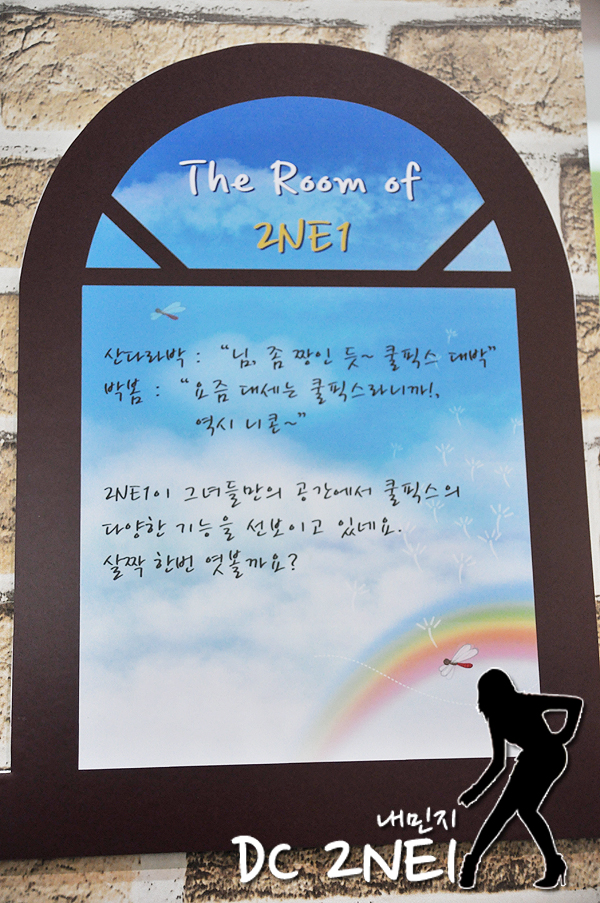 The Room of
2NE1
산다라박 : “님, 좀 짱인 듯~ 쿨픽스 대박”
박봄 : “요즘 대세는 쿨픽스라니까!,
역시 니콘~”
2NE1이 그녀들만의 공간에서 쿨픽스의
다양한 기능을 선보이고 있네요.
살짝 한번 엿볼까요?
내민지
DC 2NE1